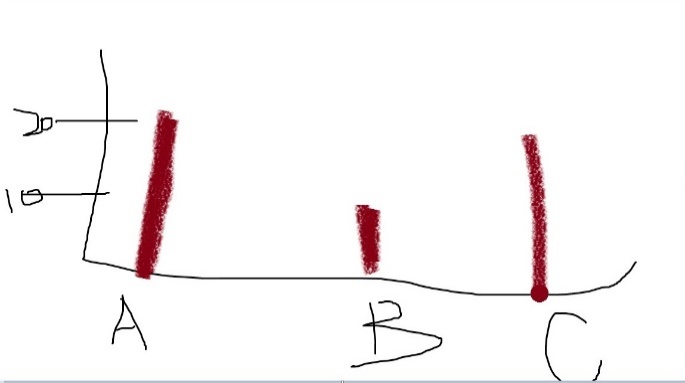 20
10
A B C